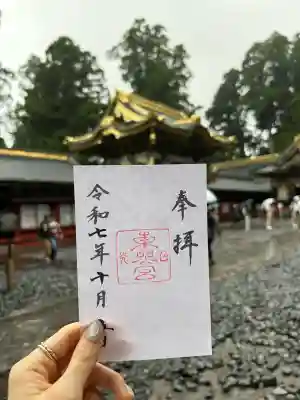 奉拝
東照宮
令和七年十月